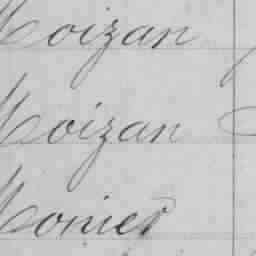 Moizan
Moizan
Monier